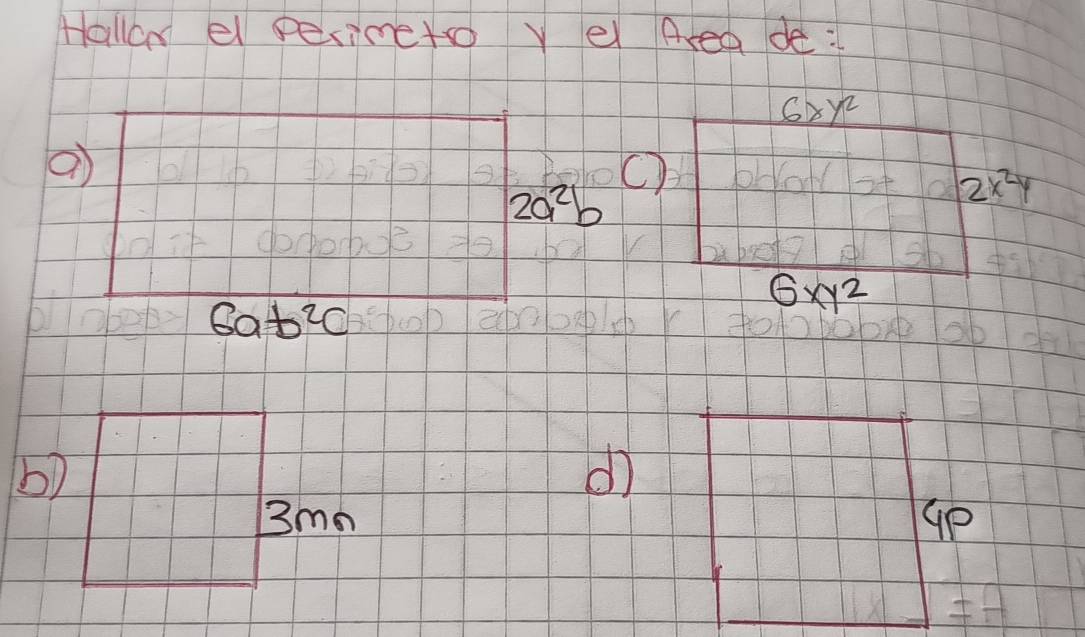 Hallar el Perimetro y el Area de:
a)
2a²b
6ab²c
c)
6xy²
2x²y
6xy²
b)
3mn
d)
4p